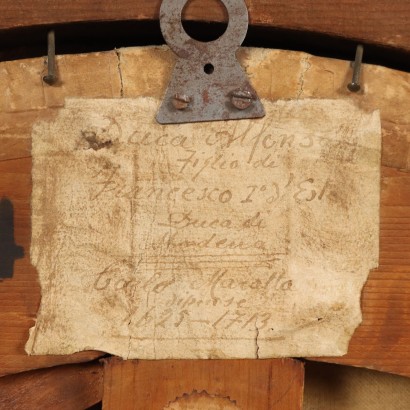 Duca Alfonso
Figlio di
Francesco I° d'Est
Duca di
Modena
Carlo Maratta
dipinse
1625-1713